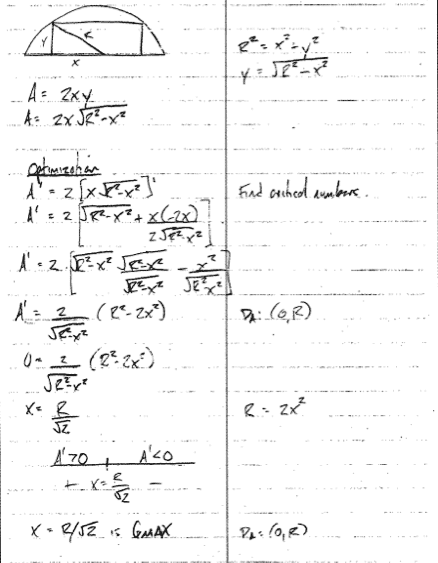 y R
x
R² = x² - y²
y = √R² - x²
A = 2xy
A = 2x√R² - x²
Optimization
A' = 2[x√R² - x²]'
Find critical numbers.
A' = 2[√R² - x² + x(-2x) / 2√R² - x²]
A' = 2[√R² - x² √R² - x² / √R² - x² - x² / √R² - x²]
A' = 2 / √R² - x² (R² - 2x²)
D_A: (0, R)
0 = 2 / √R² - x² (R² - 2x²)
x = R / √2
R = 2x²
A' > 0 A' < 0
+ x = R / √2 -
x = R/√2 is GMAX
D_A: (0, R)